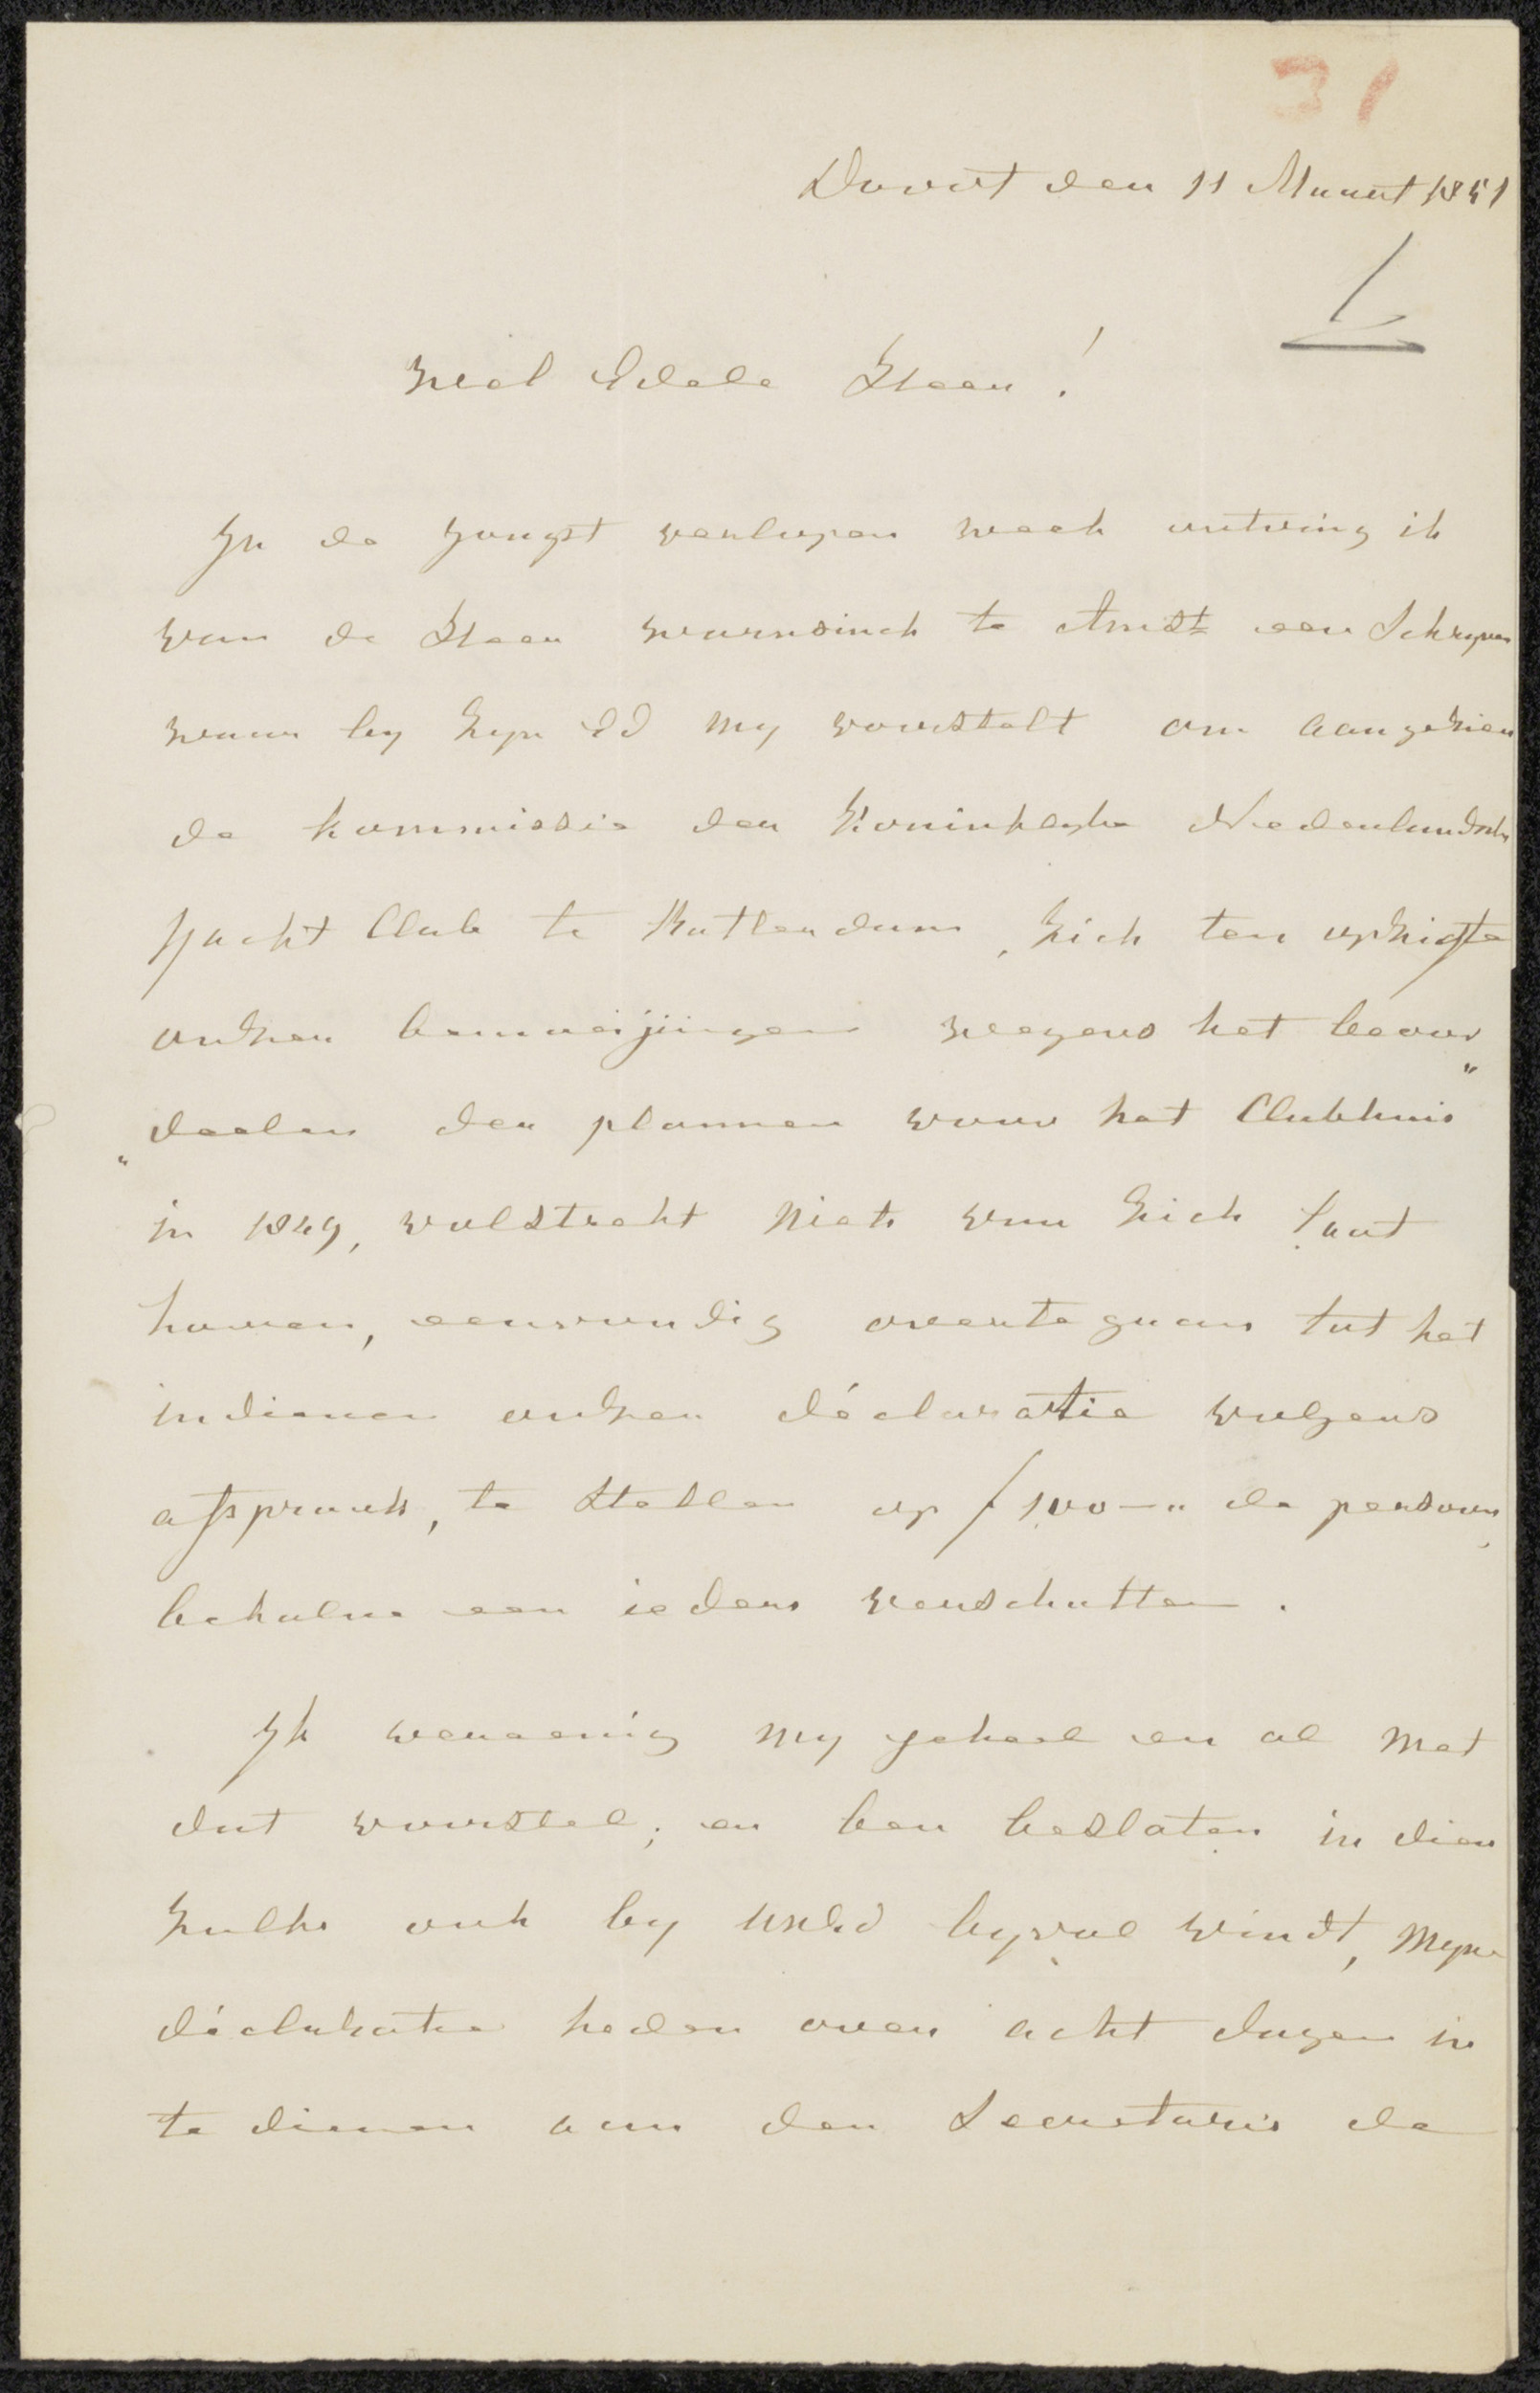 31
Dordt den 11 Maart 1851
1
Wel Edele Heer!
In de jongst verlopen week ontving ik
van de Heer Warnsinck te Amst een Schryven
waar by Zyn Ed my voorstelt om aangezien
de Kommissie der Koninklyke Nederlandsche
Yacht Club te Rotterdam, zich ten opzigte
onzer bemoeijingen wegens het beoor„
„deelen der plannen voor het Clubhuis
in 1849, volstrekt niets van zich laat
hooren, eenvoudig over te gaan tot het
indienen onzer déclaratie volgens
afspraak, te stellen op ƒ 100 — „ de persoon,
behalve een ieders verschotten.
Ik vereenig my geheel en al met
dat voorstel; en ben besloten indien
zulks ook by UWEd byval vindt, myne
déclaratie heden over acht dagen in
te dienen aan den Secretaris de